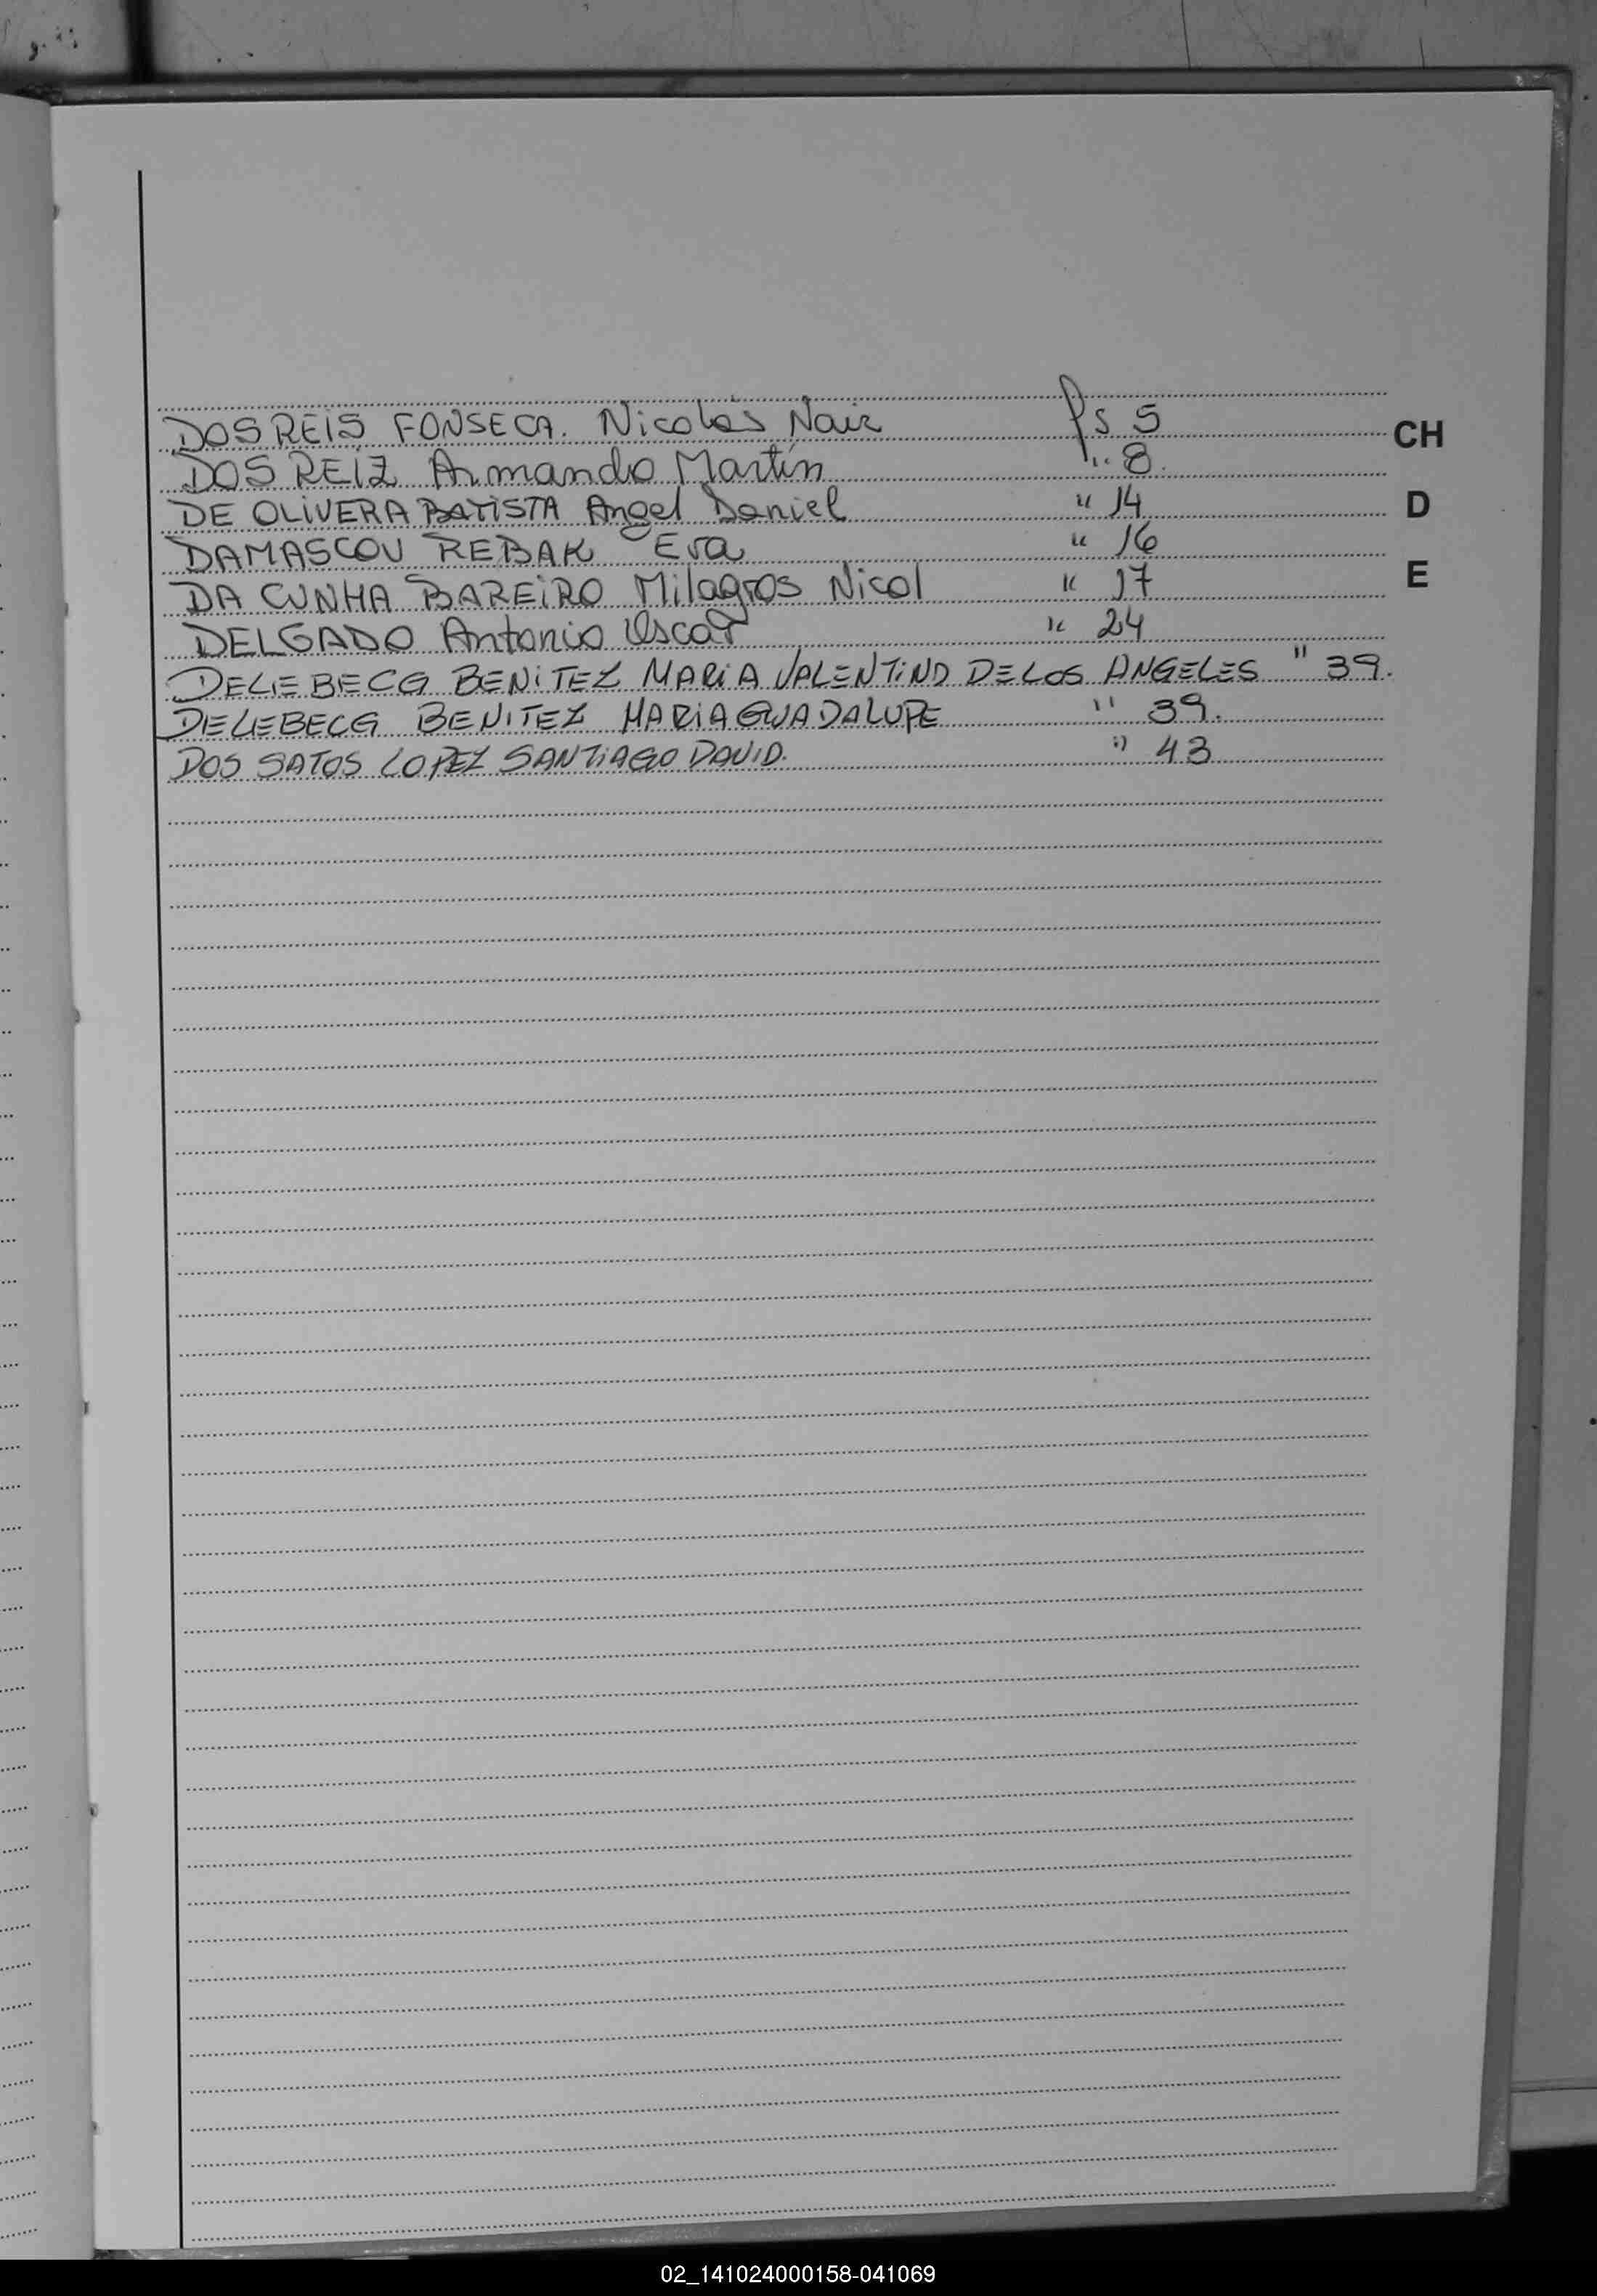 DOS REIS FONSECA. Nicolás Nair fs 5
CH
DOS REIZ Armando Martín " 8.
DE OLIVERA BATISTA Angel Daniel " 14
D
DAMASCOU REBAK Eva " 16
DA CUNHA BAREIRO Milagros Nicol " 17
E
DELGADO Antonio Oscar " 24
DELEBECG BENITEZ MARIA VALENTINO DE LOS ANGELES " 39.
DELEBECG BENITEZ MARIA GUADALUPE " 39.
DOS SATOS LOPEZ SANTIAGO DAVID. " 43
02_141024000158-041069